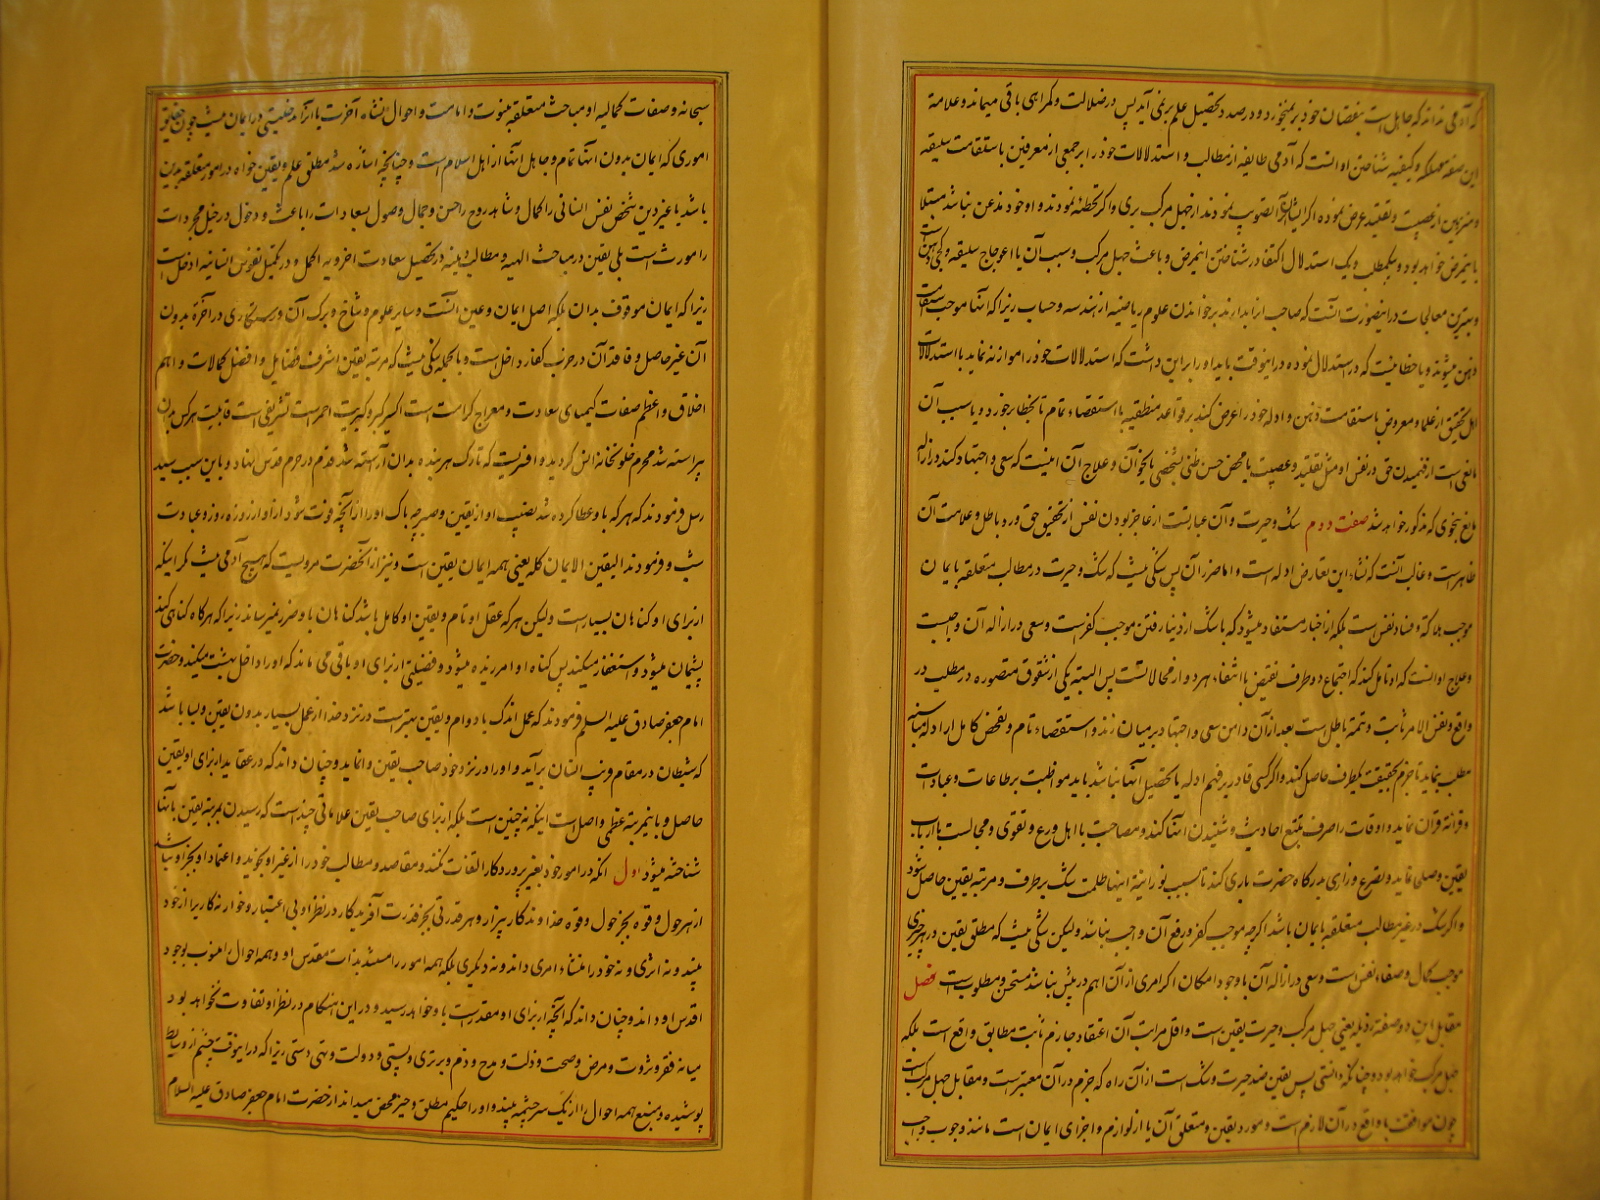 که آدمی نداند که جاهل است بنقصان خود برنمیخورد و درصدد تحصیل علم برنمی آید پس در ضلالت و گمراهی باقی میماند و علامة
این صفة مهلکه و کیفیه شناختن او آنست که آدمی طایفه از مطالب و استدلالات خود را بر جمعی از معرفین باستقامت سلیقه
و منزهین از عصبیت و تقلید عرض نموده اگر ایشان آنرا تصویب نمودند از جهل مرکب بری و اگر تخطئه نمودند و او خود مذعن نباشد مبتلا
باینمرض خواهد بود و بیکمطلب و یک استدلال اکتفا در شناختن اینمرض و باعث جهل مرکب و سبب آن یا اعوجاج سلیقه و کجی ذهن است
و بهترین معالجات در اینصورت آنست که صاحب آنرا بدارند بر خواندن علوم ریاضیه از هندسه و حساب زیرا که آنها موجب استقامت
ذهن میشوند و یا خطائیست که در استدلال نموده در اینوقت باید او را بر این داشت که استدلالات خود را موازنه نماید با استدلالات
اهل تحقیق از علما و معروفین باستقامت ذهن و ادله خود را عرض کند بر قواعد منطقیه با استقصاء تمام تا بخطا برخورد و یا سبب آن
مانعی است از فهمیدن حق در نفس او مثل تقلید و عصبیت یا محض حسن ظنی بشخصی یا نحو آن و علاج آن اینست که سعی و اجتهاد کند در ازاله
مانع بنحوی که مذکور خواهد شد صفت دوم شک و حیرت و آن عبارتست از عاجز بودن نفس از تحقیق حق و رد باطل و علامت آن
ظاهر است و غالب آنست که منشاء این تعارض ادله است و اما ضرر آن پس شکی نیست که شک و حیرت در مطالب متعلقه بایمان
موجب هلاکة و فساد نفس است بلکه از اخبار مستفاد میشود که با شک از دنیا رفتن موجب کفر است و سعی در ازاله آن واجبست
و علاج او آنست که او تامل کند که اجتماع دو طرف نقیض یا انتفاء هر دو از محالاتست پس البته یکی از شقوق متصوره در مطلب در
واقع و نفس الامر ثابت و تتمه باطل است بعد از آن دامن سعی و اجتهاد بر میان زند و استقصاء تام و تفحص کامل از ادله مناسبه
مطلب نماید تا جزم بحقیقت یکطرف حاصل کند و اگر کسی قادر بر فهم ادله یا تحصیل آنها نباشد باید مواظبت بر طاعات و عبادات
و قرائة قران نماید و اوقات را صرف تتبع احادیث و شنیدن آنها کند و مصاحبت با اهل ورع و تقوی و مجالست با ارباب
یقین وصلی نماید و تضرع و زاری بدرگاه حضرت باری کند تا بسبب نورانیة اینها ظلمت شک برطرف و مرتبه یقین حاصل شود
و اگر شک در غیر مطالب متعلقه بایمان باشد اگر چه موجب کفر و رفع آن واجب نباشد ولیکن شکی نیست که مطلق یقین در هر چیزی
موجب کمال و صفاء نفس است و سعی در ازاله آن با وجود امکان اگر امری از آن اهم در پیش نباشد مستحسن و مطلوبست فصل
مقابل این دو صفة رذیله یعنی جهل مرکب و حیرت یقین است و اقل مراتب آن اعتقاد جازم ثابت مطابق واقع است بلکه
جهل مرکب خواهد بود و چنانکه دانستی پس یقین ضد حیرت و شک است از آن راه که جزم در آن معتبر است و مقابل جهل مرکب است
چون موافقت با واقع در آن لازم است و مورد یقین و متعلق آن یا از لوازم و اجزای ایمان است مانند وجوب واجب
سبحانه و صفات کمالیه او مباحث متعلقه بنبوت و امامت و احوال نشاه آخرت یا آنرا مدخلیتی در ایمان نیست چون حقایق
اموری که ایمان بدون آنها تمام و جاهل آنها از اهل اسلام است و چنانچه اشاره شد مطلق علم و یقین خواه در امور متعلقه بدین
باشد یا غیر دین شخص نفس انسانی را کمال و شاهد روح را حسن و جمال و وصول بسعادات را باعث و دخول در خیل مجردات
را مورث است بلی یقین در مباحث الهیه و مطالب دینیه در تحصیل سعادت اخرویه اکمل و در تکمیل نفوس انسانیه ادخل است
زیرا که ایمان موقوف بدان بلکه اصل ایمان و عین آنست و سایر علوم و شاخ و برگ آن و رستگاری در آخرة بدون
آن غیر حاصل و فاقد آن در حزب کفار داخل است و بالجمله شکی نیست که مرتبه یقین اشرف فضایل و افضل کمالات و اهم
اخلاق و اعظم صفات کیمیای سعادت و معراج کرامت است اکسیر اکبر و کبریت احمر است تشریفی است قابلیت هر کس بدان
پیراسته شد محرم خلوتخانه انس گردید و افسریست که تارک هر بنده بدان آراسته شد قدم در حرم قدس نهاد و باین سبب سید
رسل فرمودند که هر که باو عطا کرده شد نصیب او از یقین و صبر چه باک او را از آنچه فوت شود از او از روزه روز و عبادت
شب و فرمودند الیقین الایمان کله یعنی همه ایمان یقین است و نیز از آنحضرت مرویست که هیچ آدمی نیست مگر اینکه
از برای او گناهان بسیار است ولیکن هر که عقل او تام و یقین او کامل باشد گناهان باو ضرر نمیرساند زیرا که هرگاه گناهی کند
پشیمان میشود و استغفار میکند پس گناه او امرزیده میشود و فضیلتی از برای او باقی می ماند که او را داخل بهشت میکند و حضرت
امام جعفر صادق علیه السلم فرمودند که عمل اندک با دوام و یقین بهتر است در نزد خدا از عمل بسیار بدون یقین و بسا باشد
که شیطان در مقام فریب انسان برآید و او را در نزد خود صاحب یقین وانماید و چنان داند که در عقاید از برای او یقین
حاصل و باینمرتبه عظمی واصل است اینکه نه چنین است بلکه از برای صاحب یقین علاماتی چند است که رسیدن بمرتبه یقین بآنها
شناخته میشود اول انکه در امور خود بغیر پروردگار التفات نکند و مقاصد و مطالب خود را از غیر او نجوید و اعتماد او بجز او نباشد
از هر حول و قوه بجز حول و قوه خداوندگار بیزار و هر قدرتی بجز قدرت آفریدگار در نظر او بی اعتبار و خوار نه کاریرا از خود
بیند و نه اثری و نه خود را منشاء امری داند و نه دیگری بلکه همه امور را مستند بذات مقدس او و همه احوال را منسوب بوجود
اقدس او داند و چنان داند که آنچه از برای او مقدر است باو خواهد رسید و در این هنگام در نظر او تفاوت نخواهد بود
میانه فقر و ثروت و مرض و صحت و ذلت و مدح و ذم و برتری و پستی و دولت و تهی دستی زیرا که در اینوقت چشم از وسایط
پوشیده و منبع همه احوال را از یک سرچشمه بیند و او را حکیم مطلق و خیر محض میداند از حضرت امام جعفر صادق علیه السلام